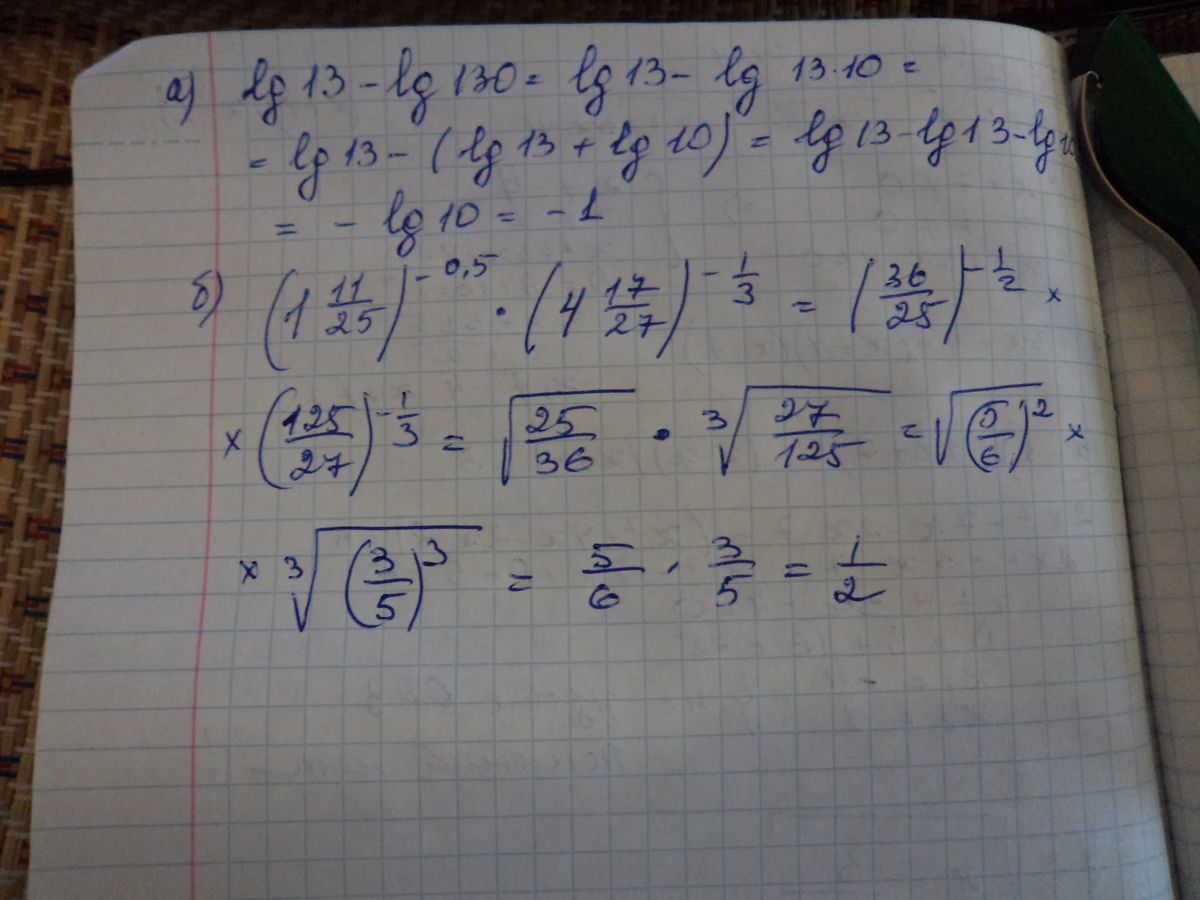 а) lg 13 - lg 130 = lg 13 - lg 13·10 =
= lg 13 - (lg 13 + lg 10) = lg 13 - lg 13 - lg 10
= - lg 10 = -1
б) (1 11/25)^(-0,5) · (4 17/27)^(-1/3) = (36/25)^(-1/2) ×
× (125/27)^(-1/3) = √(25/36) · ³√(27/125) = √((5/6)²) ×
× ³√((3/5)³) = 5/6 · 3/5 = 1/2